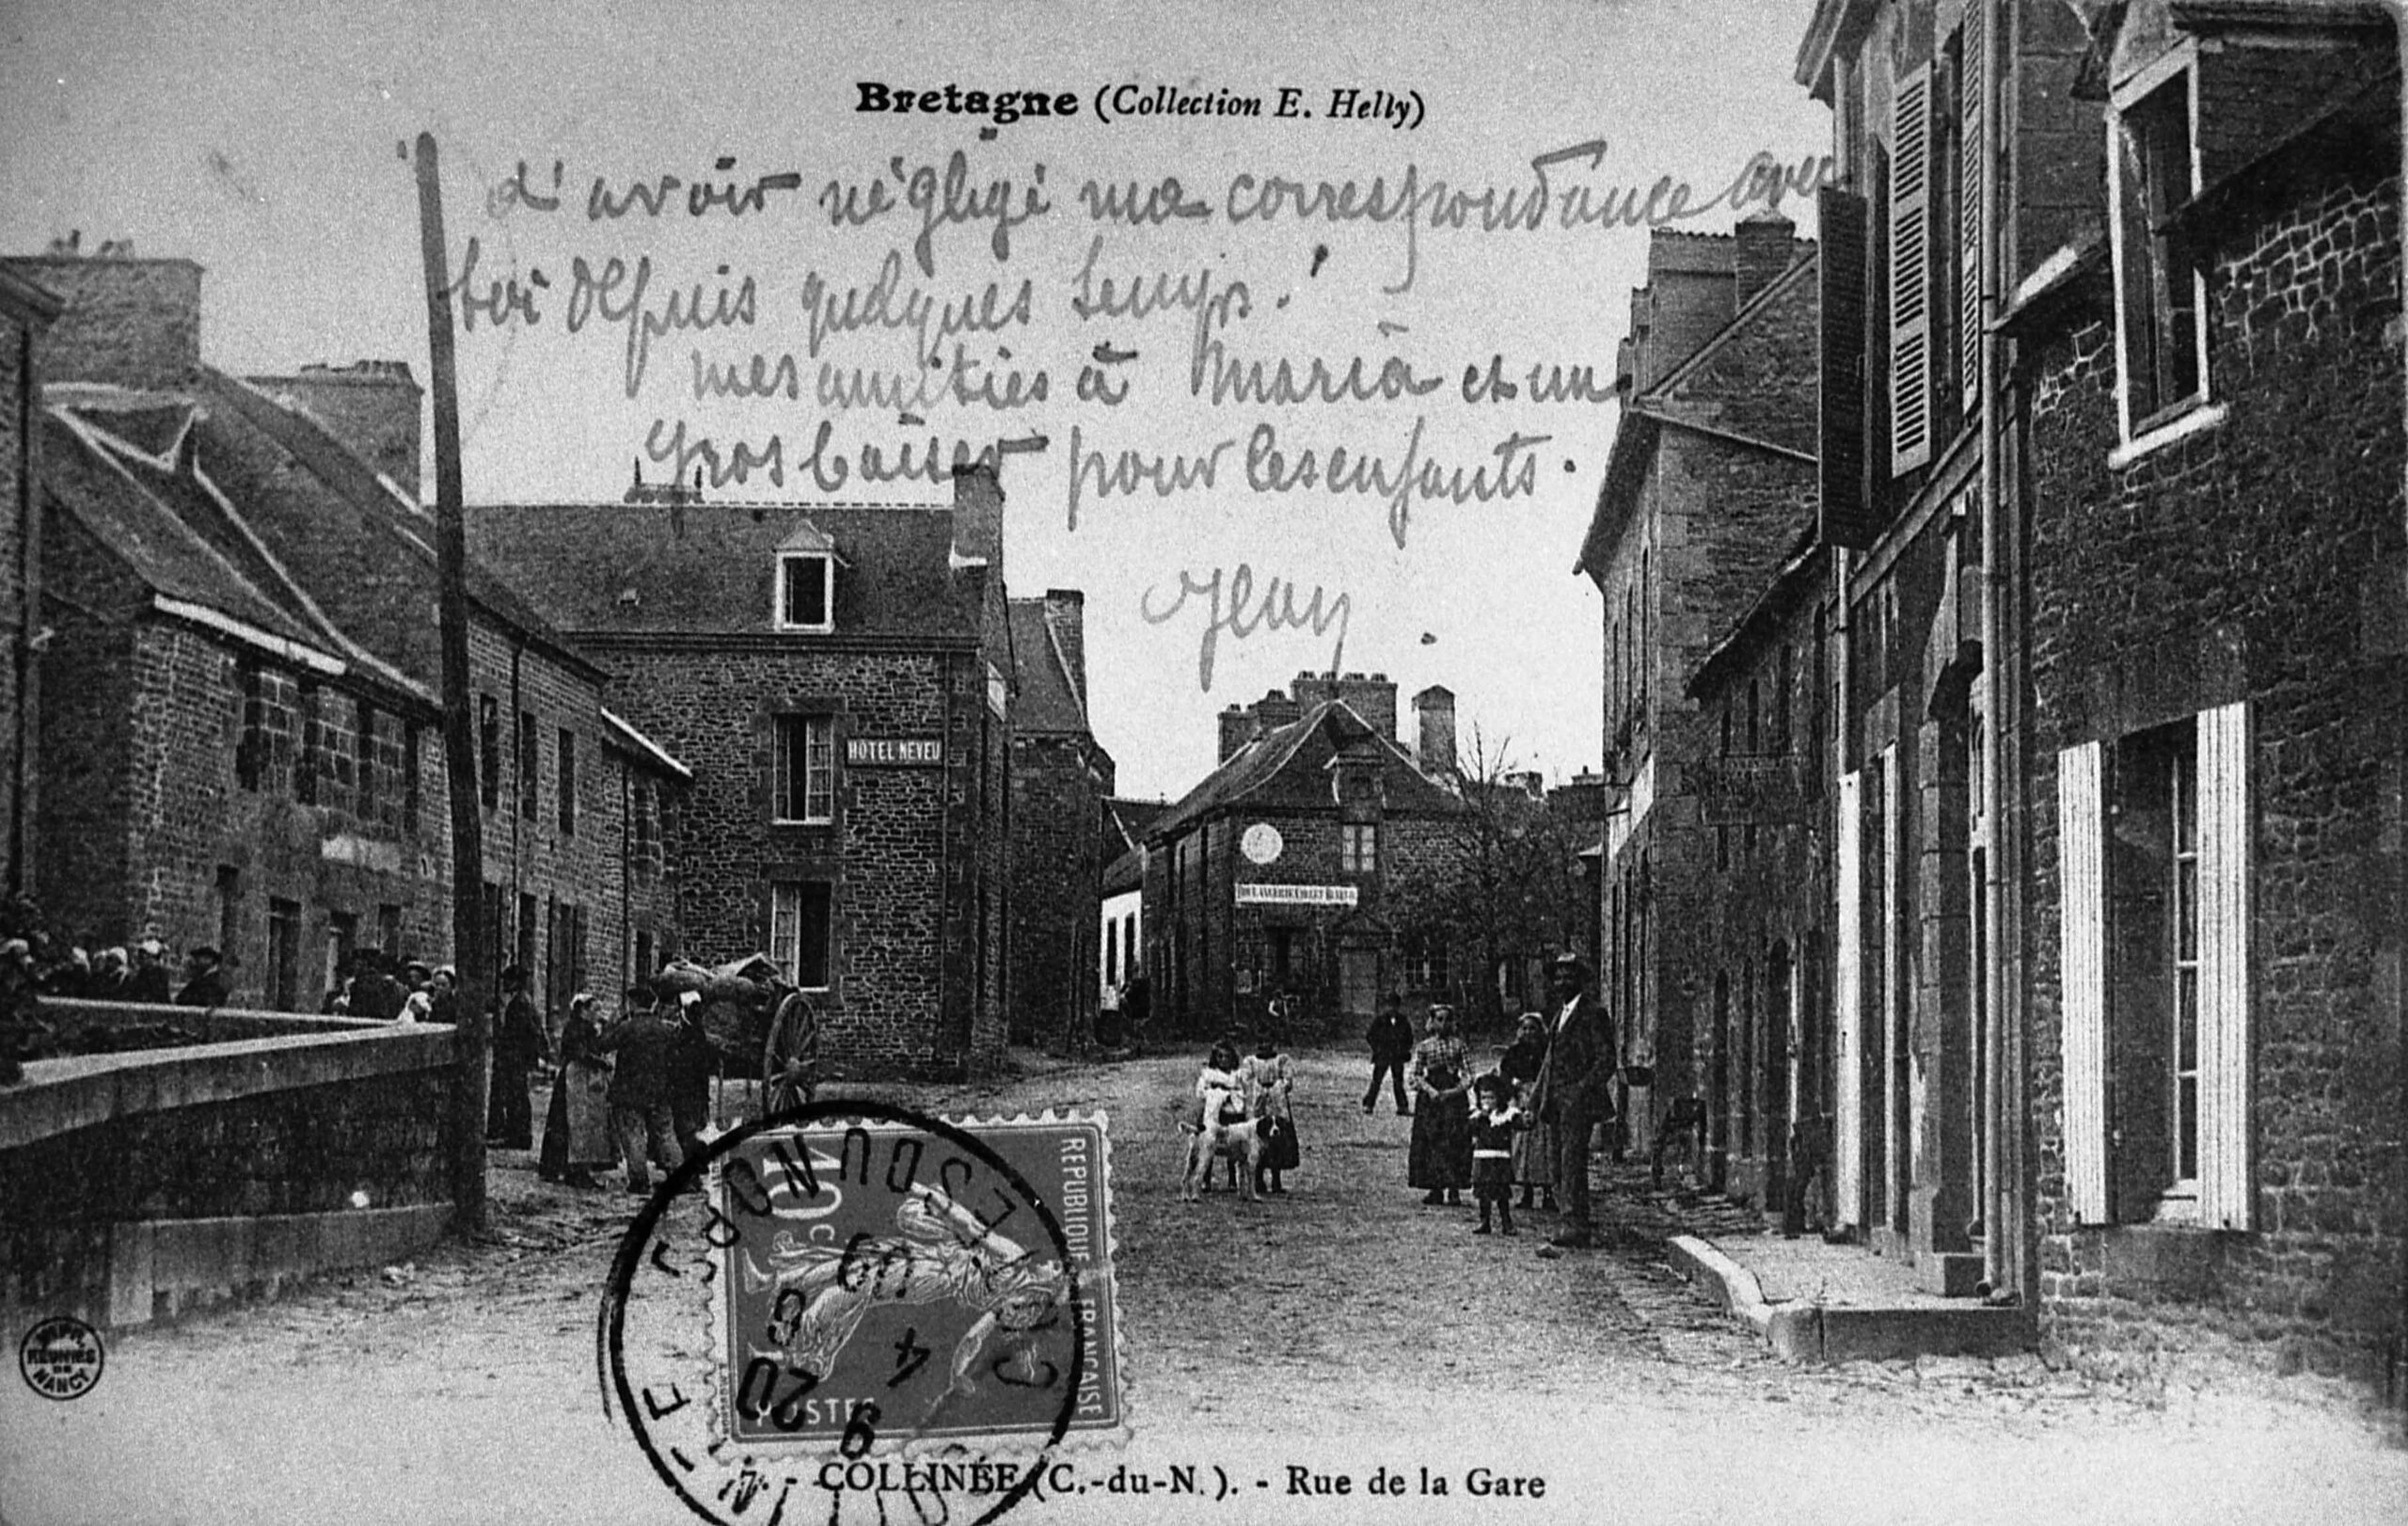 Bretagne (Collection E. Helly)
d'avoir négligé ma correspondance avec
toi depuis quelques temps!
mes amitiés à Maria et un
gros baiser pour les enfants.
Jean
HOTEL NEVEU
REPUBLIQUE FRANÇAISE
10c
POSTES
COTES DU NORD
9 20
6 4
09
RÉUNIES
DE
NANCY
7. - COLLINÉE (C.-du-N.). - Rue de la Gare